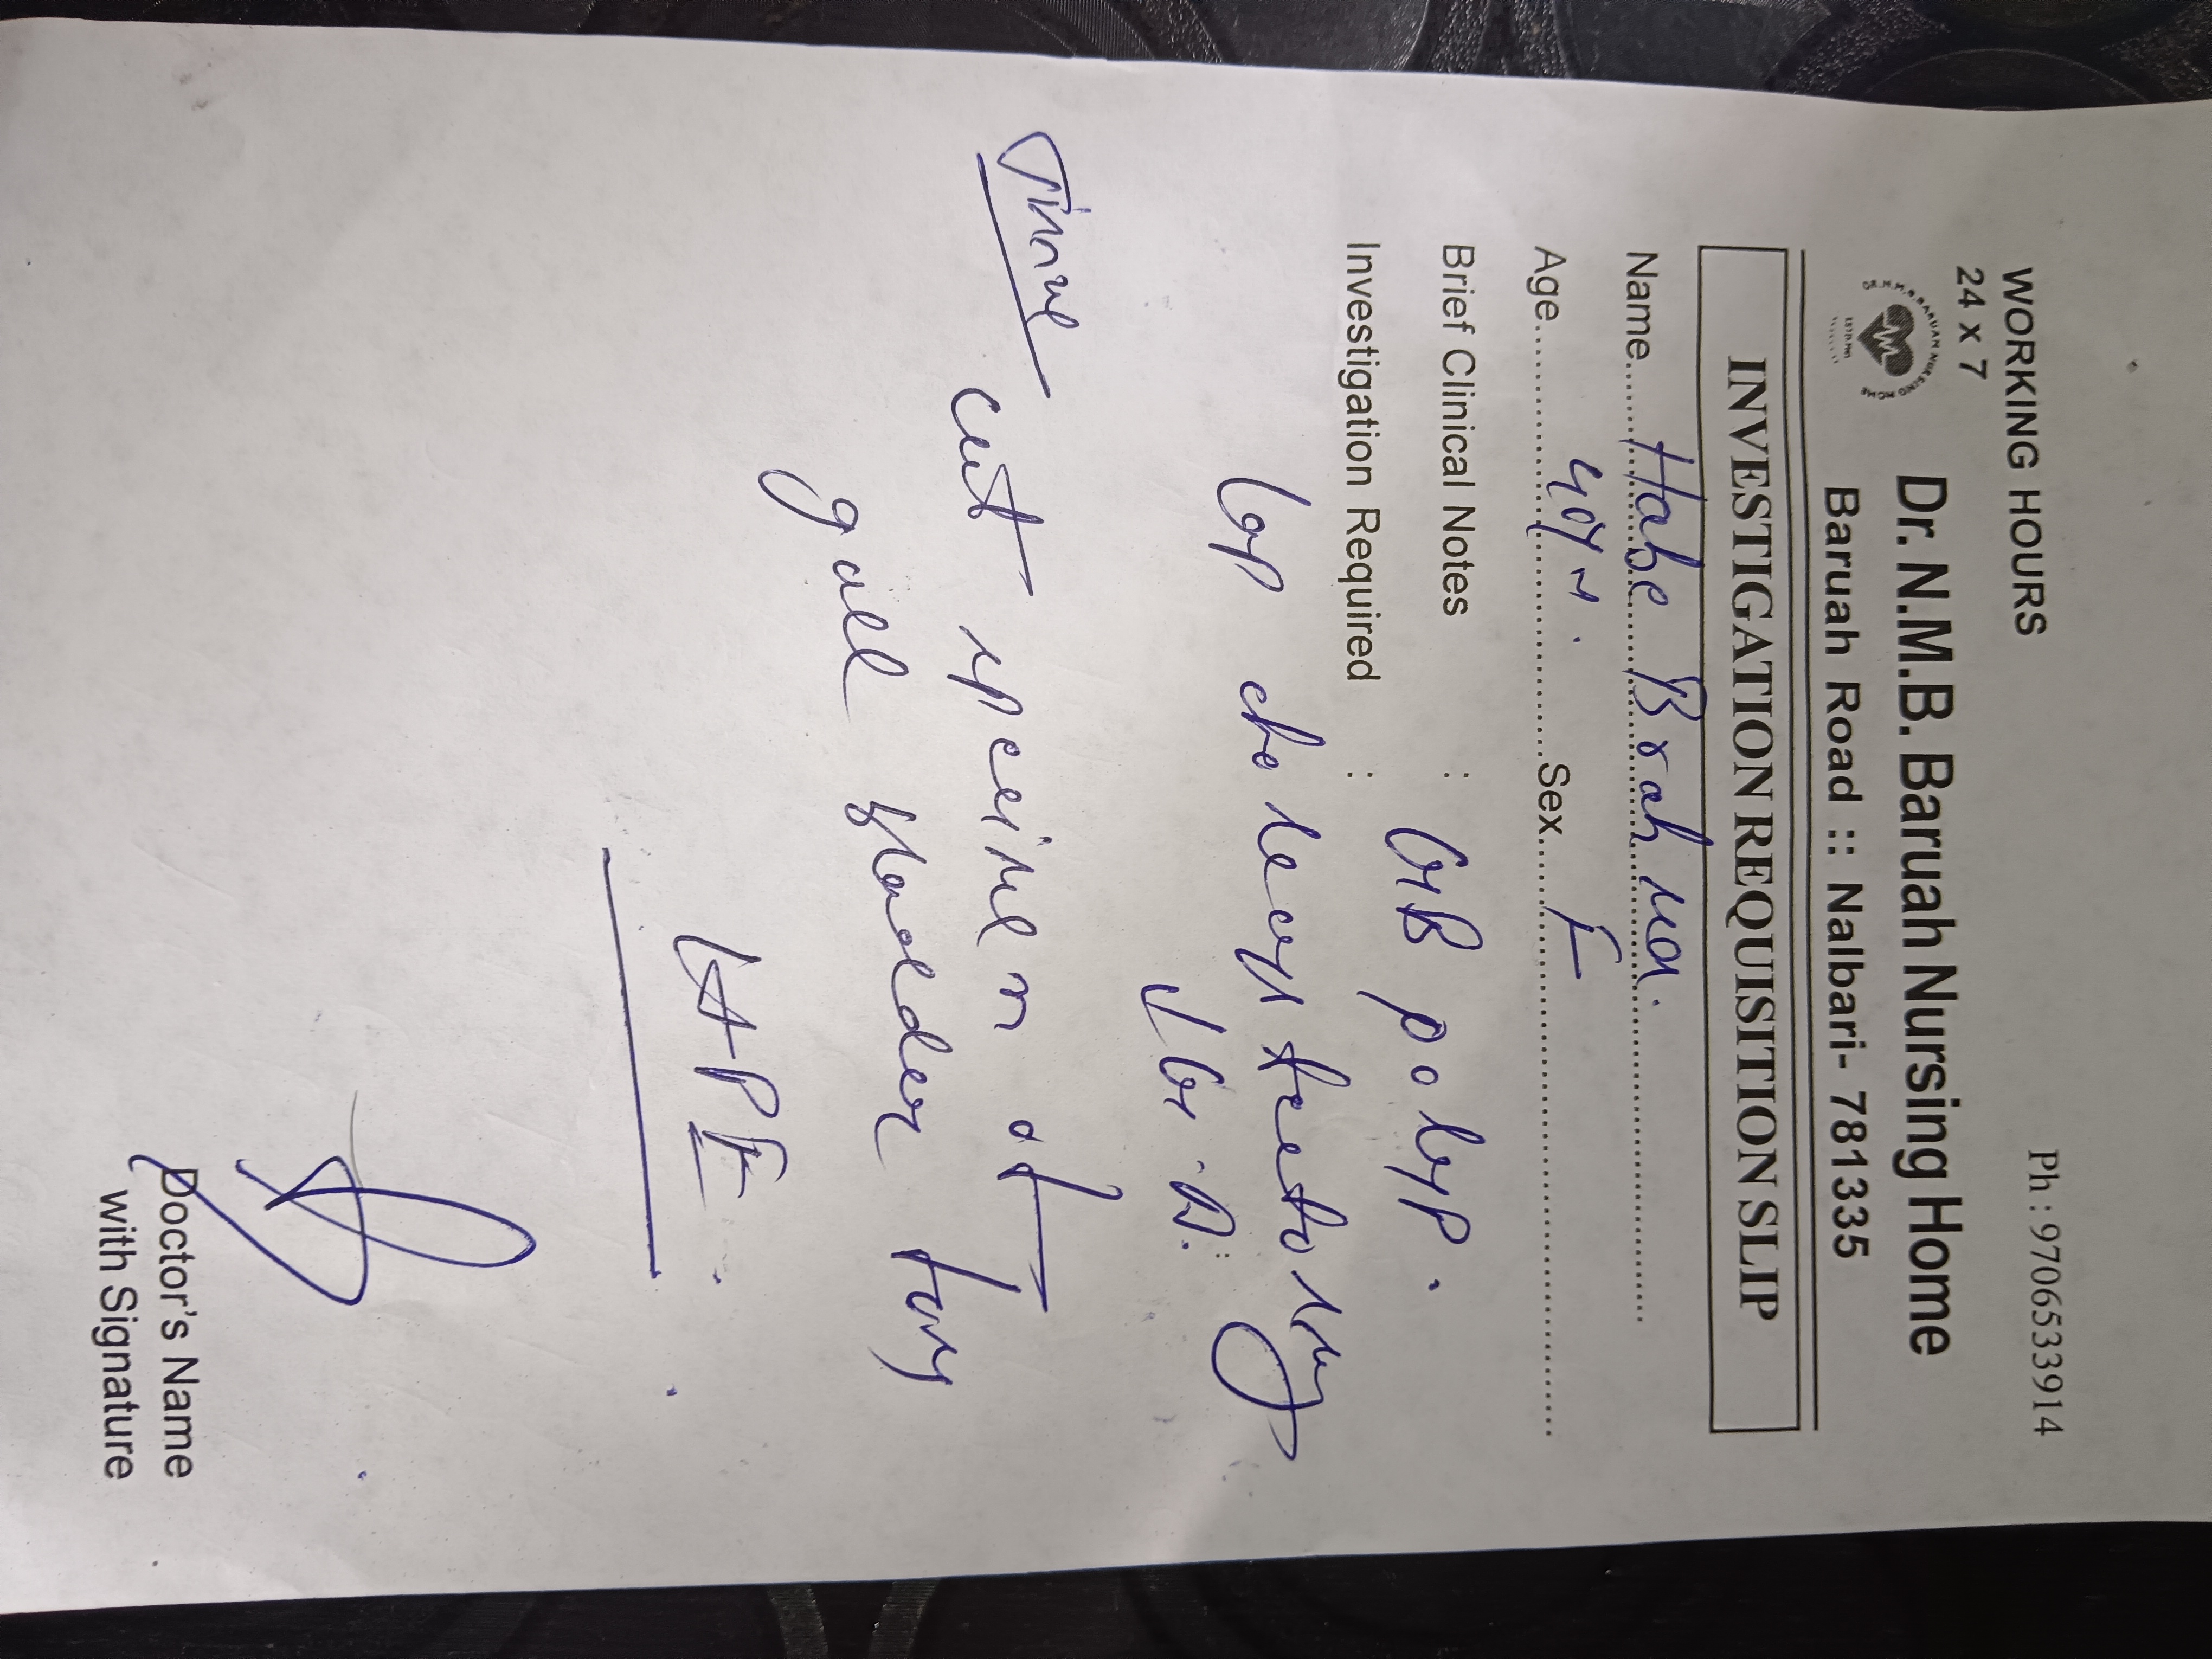 WORKING HOURS
24 x 7
Ph : 9706533914
Dr. N.M.B. Baruah Nursing Home
Baruah Road :: Nalbari- 781335
INVESTIGATION REQUISITION SLIP
Name Habe Brahma.
Age 40Yr. Sex F
Brief Clinical Notes : GB polyp.
Investigation Required :
Lap cholecystectomy
↓ G.A.
cut specimen of
gall bladder for
HPE.
Doctor's Name
with Signature